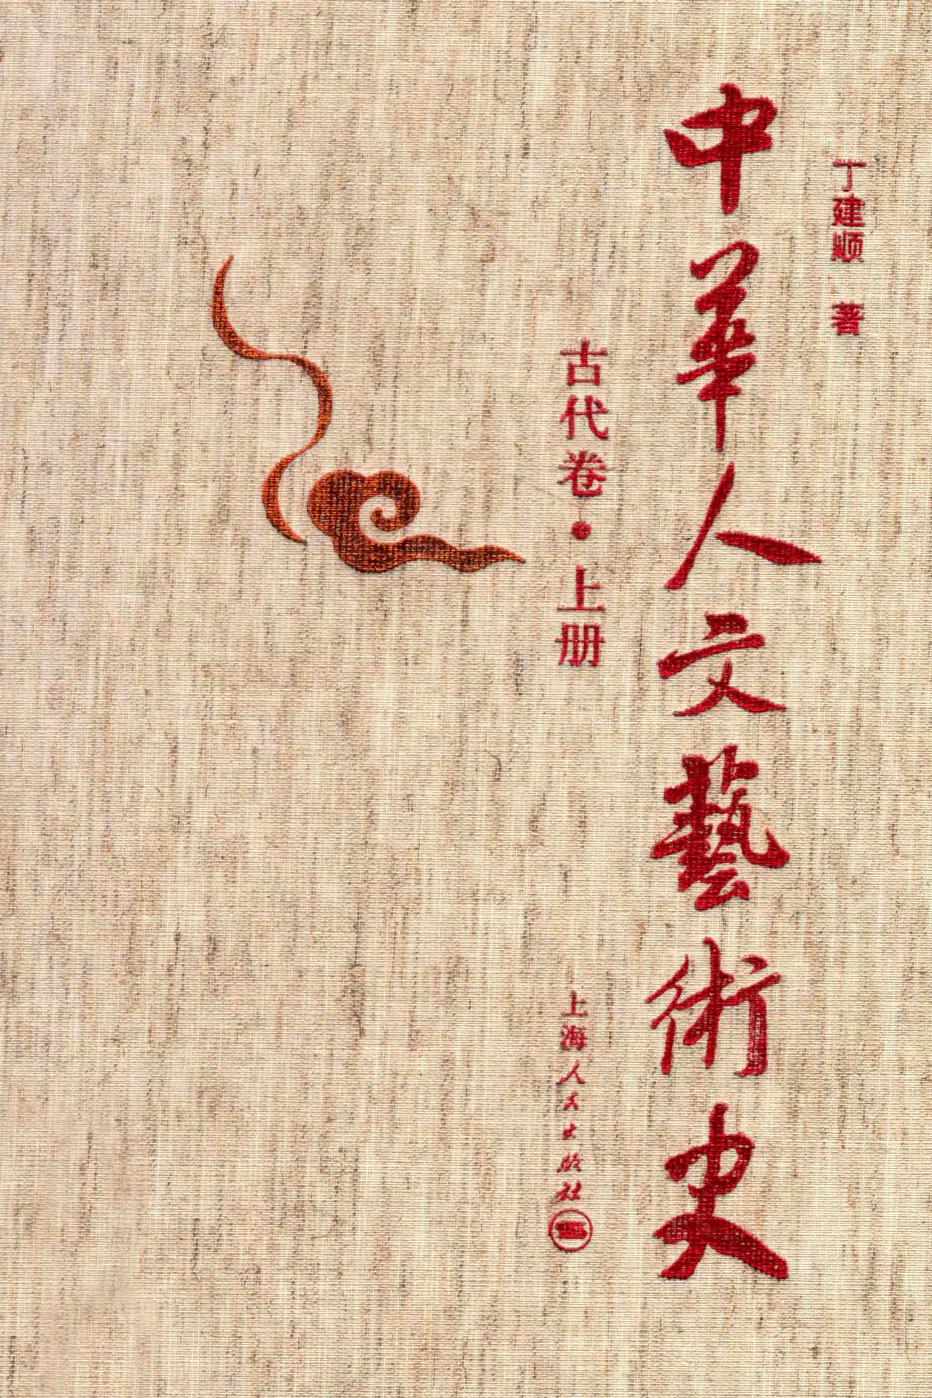 丁建顺 著
中華人文藝術史
古代卷·上册
上海人民出版社